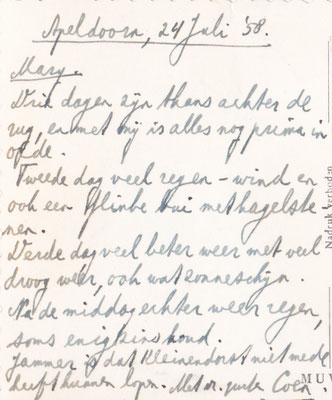 Apeldoorn, 24 Juli '58.
Mary.
Drie dagen zijn thans achter de
rug, en met mij is alles nog prima in
orde.
Tweede dag veel regen - wind en
ook een flinke bui met hagelste
nen.
Derde dag veel beter weer met veel
droog weer, ook wat zonneschijn.
Na de middag echter weer regen,
soms enigszins houd.
Jammer is dat Kleinendorst niet mede
heeft kunnen lopen. Met vr. groeten Coen.
Nadruk verboden
MUV